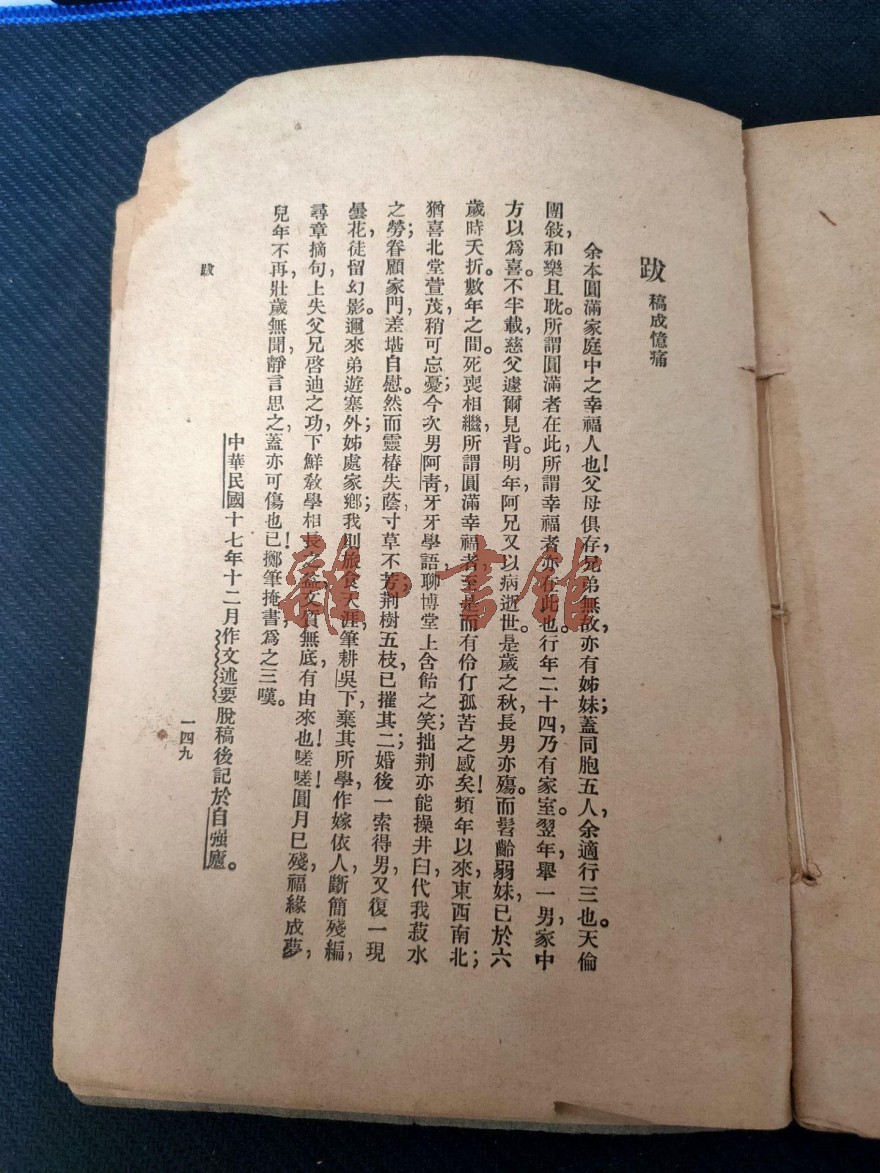 跋 稿成憶痛
余本圓滿家庭中之幸福人也！父母俱存，兄弟無故，亦有姊妹；蓋同胞五人，余適行三也。天倫
團敍，和樂且耽。所謂圓滿者在此，所謂幸福者亦在此也。行年二十四，乃有家室。翌年，舉一男，家中
方以爲喜。不半載，慈父遽爾見背。明年，阿兄又以病逝世。是歲之秋，長男亦殤。而髫齡弱妹，已於六
歲時夭折。數年之間，死喪相繼，所謂圓滿幸福者，至是而有伶仃孤苦之感矣！頻年以來，東西南北；
猶喜北堂萱茂，稍可忘憂；今次男阿靑，牙牙學語，聊博堂上含飴之笑；拙荆亦能操井臼，代我菽水
之勞；眷顧家門，差堪自慰。然而靈椿失蔭，寸草不芳；荆樹五枝，已摧其二；婚後一索得男，又復一現
曇花，徒留幻影。邇來弟遊塞外；姊處家鄉；我則旅食天涯，筆耕吳下，棄其所學，作嫁依人，斷簡殘編，
尋章摘句，上失父兄啓迪之功，下鮮敎學相長之益，文質無底，有由來也！嗟嗟！圓月已殘，福緣成夢，
兒年不再，壯歲無聞，靜言思之，蓋亦可傷也已！擲筆掩書，爲之三嘆。
中華民國十七年十二月作文述要脫稿後記於自強廬。
跋
一四九
雜·書館